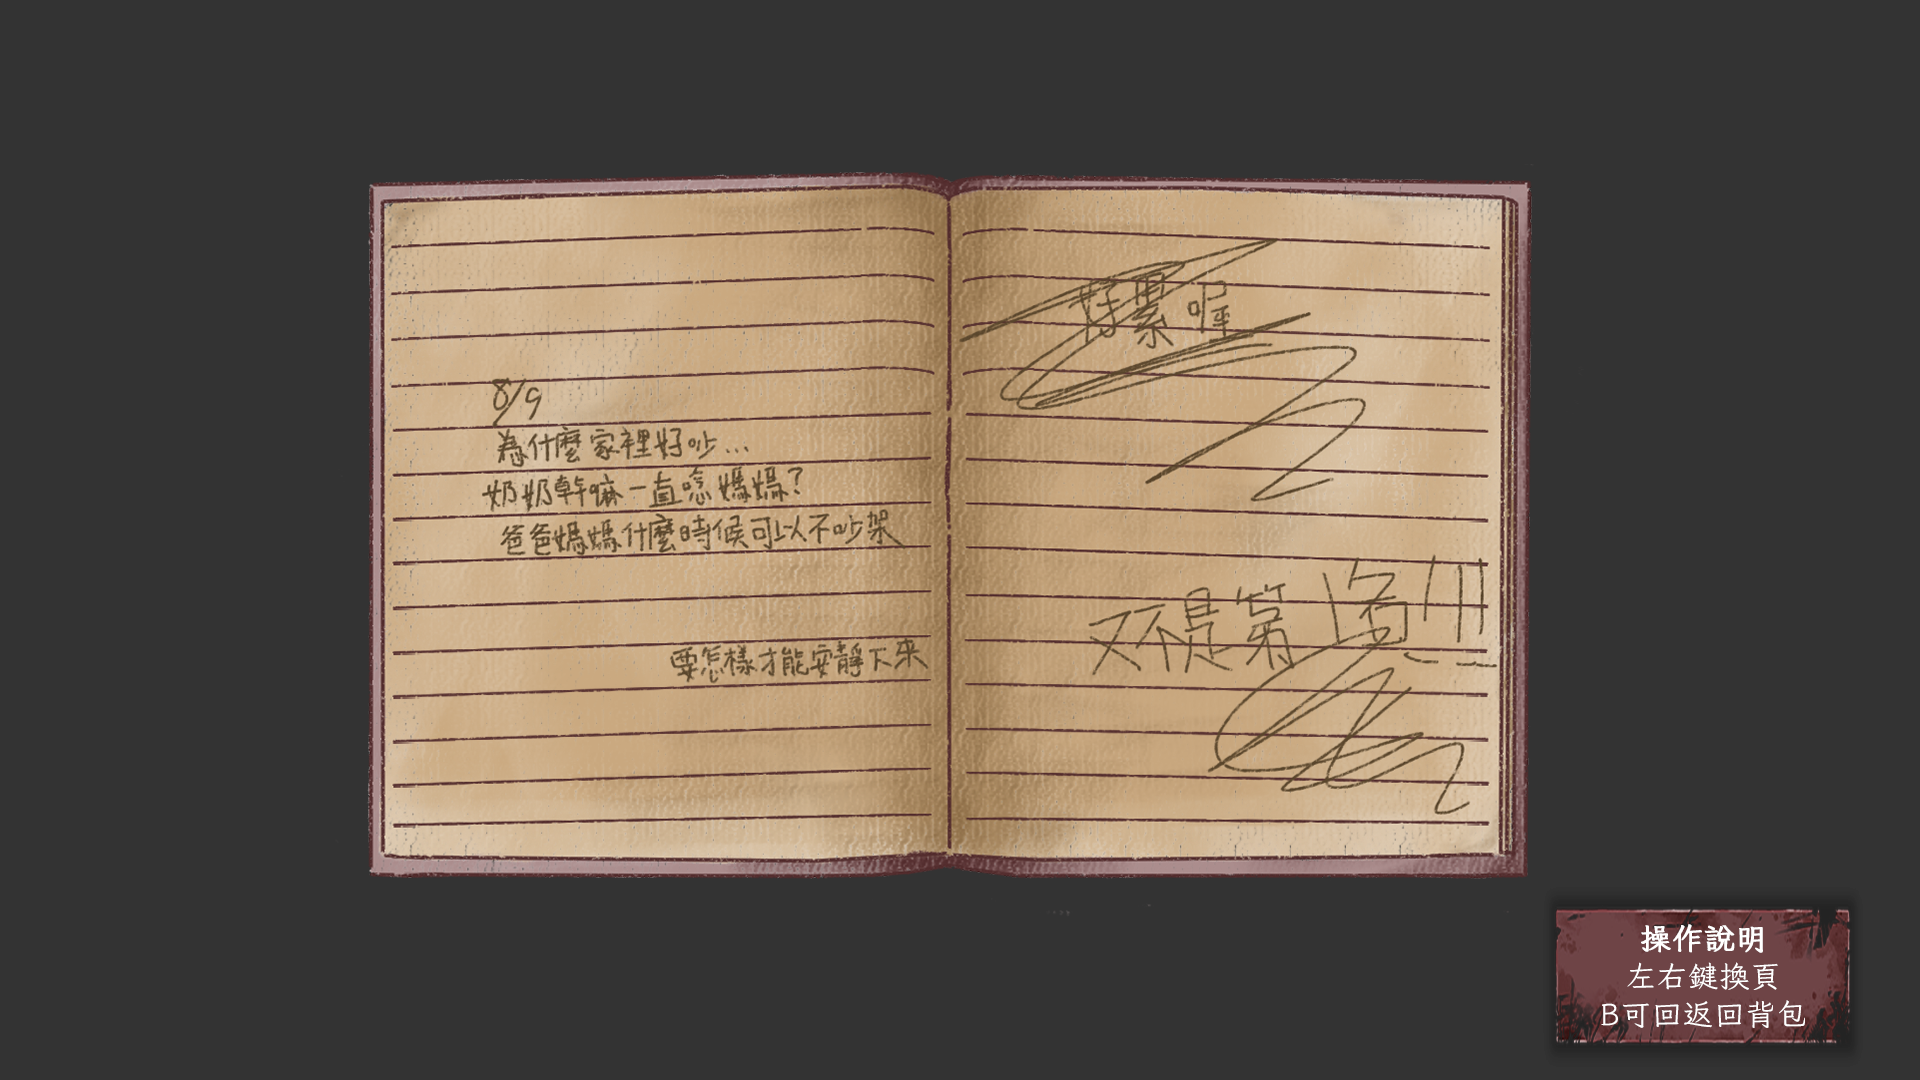 8/9
為什麼家裡好吵...
奶奶幹嘛一直唸媽媽?
爸爸媽媽什麼時候可以不吵架
要怎樣才能安靜下來
好累喔
又不是第一名!!!
操作說明
左右鍵換頁
B可回返回背包